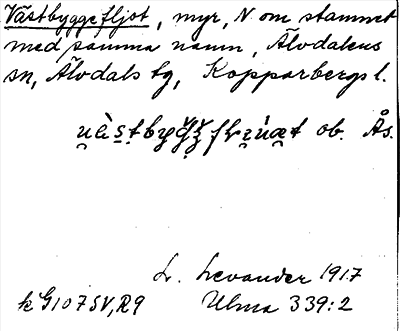 Västbyggefljot, myr, N om stammet
med samma namn, Älvdalens
sn, Älvdals tg, Kopparbergs l.
ob. Ås.
L. Levander 1917
k G107SV,R9 Ulma 339:2